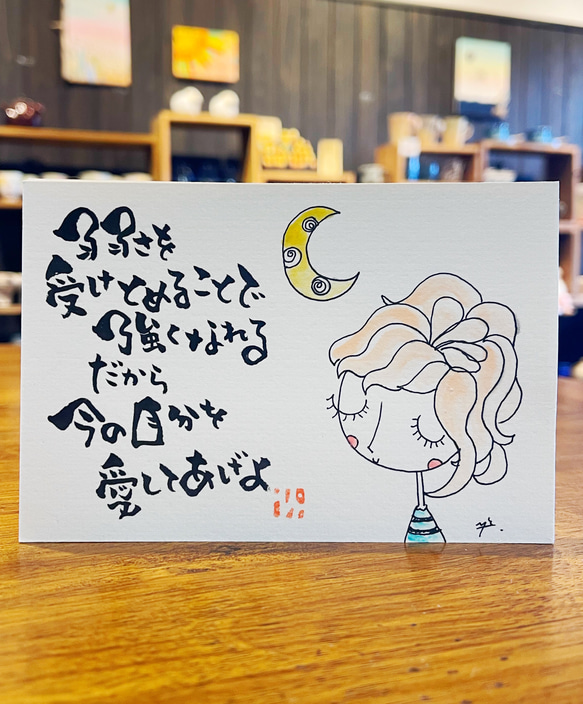 弱さを
受けとめることで
強くなれる
だから
今の自分を
愛してあげよ